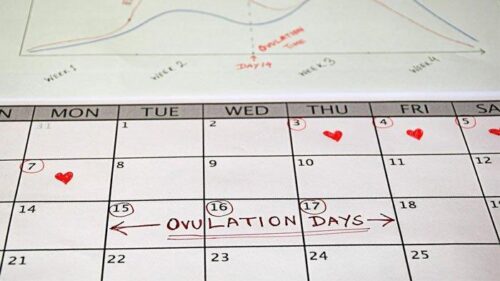 OVULATION
TIME
DAY 14
WEEK 1
WEEK 2
WEEK 3
WEEK 4
MON TUE WED THU FRI
31 1 2 3 4 5
7 8 9 10 11 12
14 15 16 17 18
OVULATION DAYS
21 22 23 24 25